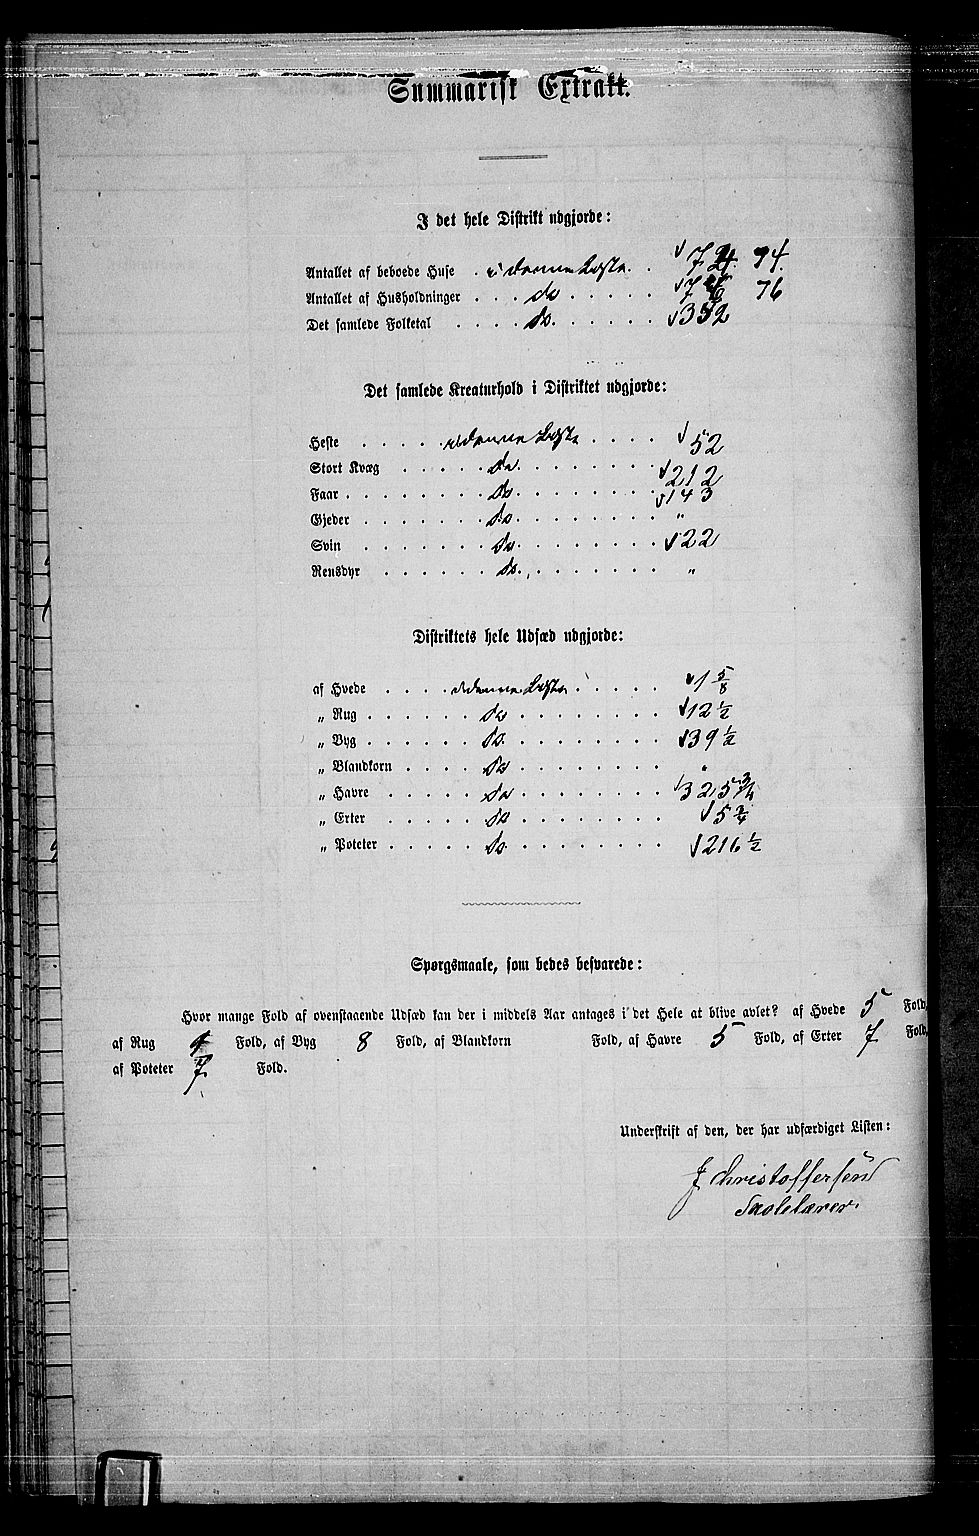 Summarisk Extrakt.
I det hele Distrikt udgjorde:
Antallet af beboede Huse . . i denne Liste. . 74. 74.
Antallet af Husholdninger . . . do . . . . . 76 76
Det samlede Folketal . . . . do. . . . . . 352
Det samlede Kreaturhold i Distriktet udgjorde:
Heste . . . . . i denne Liste . . . . 52
Stort Kvæg . . . . do . . . . . . 212
Faar . . . . . . do . . . . . . 143
Gjeder . . . . . do . . . . . . „
Svin . . . . . . do . . . . . . 22
Rensdyr . . . . . do. . . . . . . „
Distriktets hele Udsæd udgjorde:
af Hvede . . . . i denne Liste . . . . . 1 5/8
„ Rug . . . . . . do . . . . . . 12 1/2
„ Byg . . . . . . do. . . . . . . 39 1/2
„ Blandkorn . . . . do . . . . . .
„ Havre . . . . . do . . . . . . 325 3/4
„ Erter . . . . . do . . . . . . 5 3/4
„ Poteter . . . . . do . . . . . . 216 1/2
Spørgsmaale, som bedes besvarede:
Hvor mange Fold af ovenstaaende Udsæd kan der i middels Aar antages i det Hele at blive avlet? af Hvede 5 Fold,
af Rug 9 Fold, af Byg 8 Fold, af Blandkorn Fold, af Havre 5 Fold, af Erter 7 Fold,
af Poteter 7 Fold.
Underskrift af den, der har udfærdiget Listen:
J Christoffersen
Skolelærer.